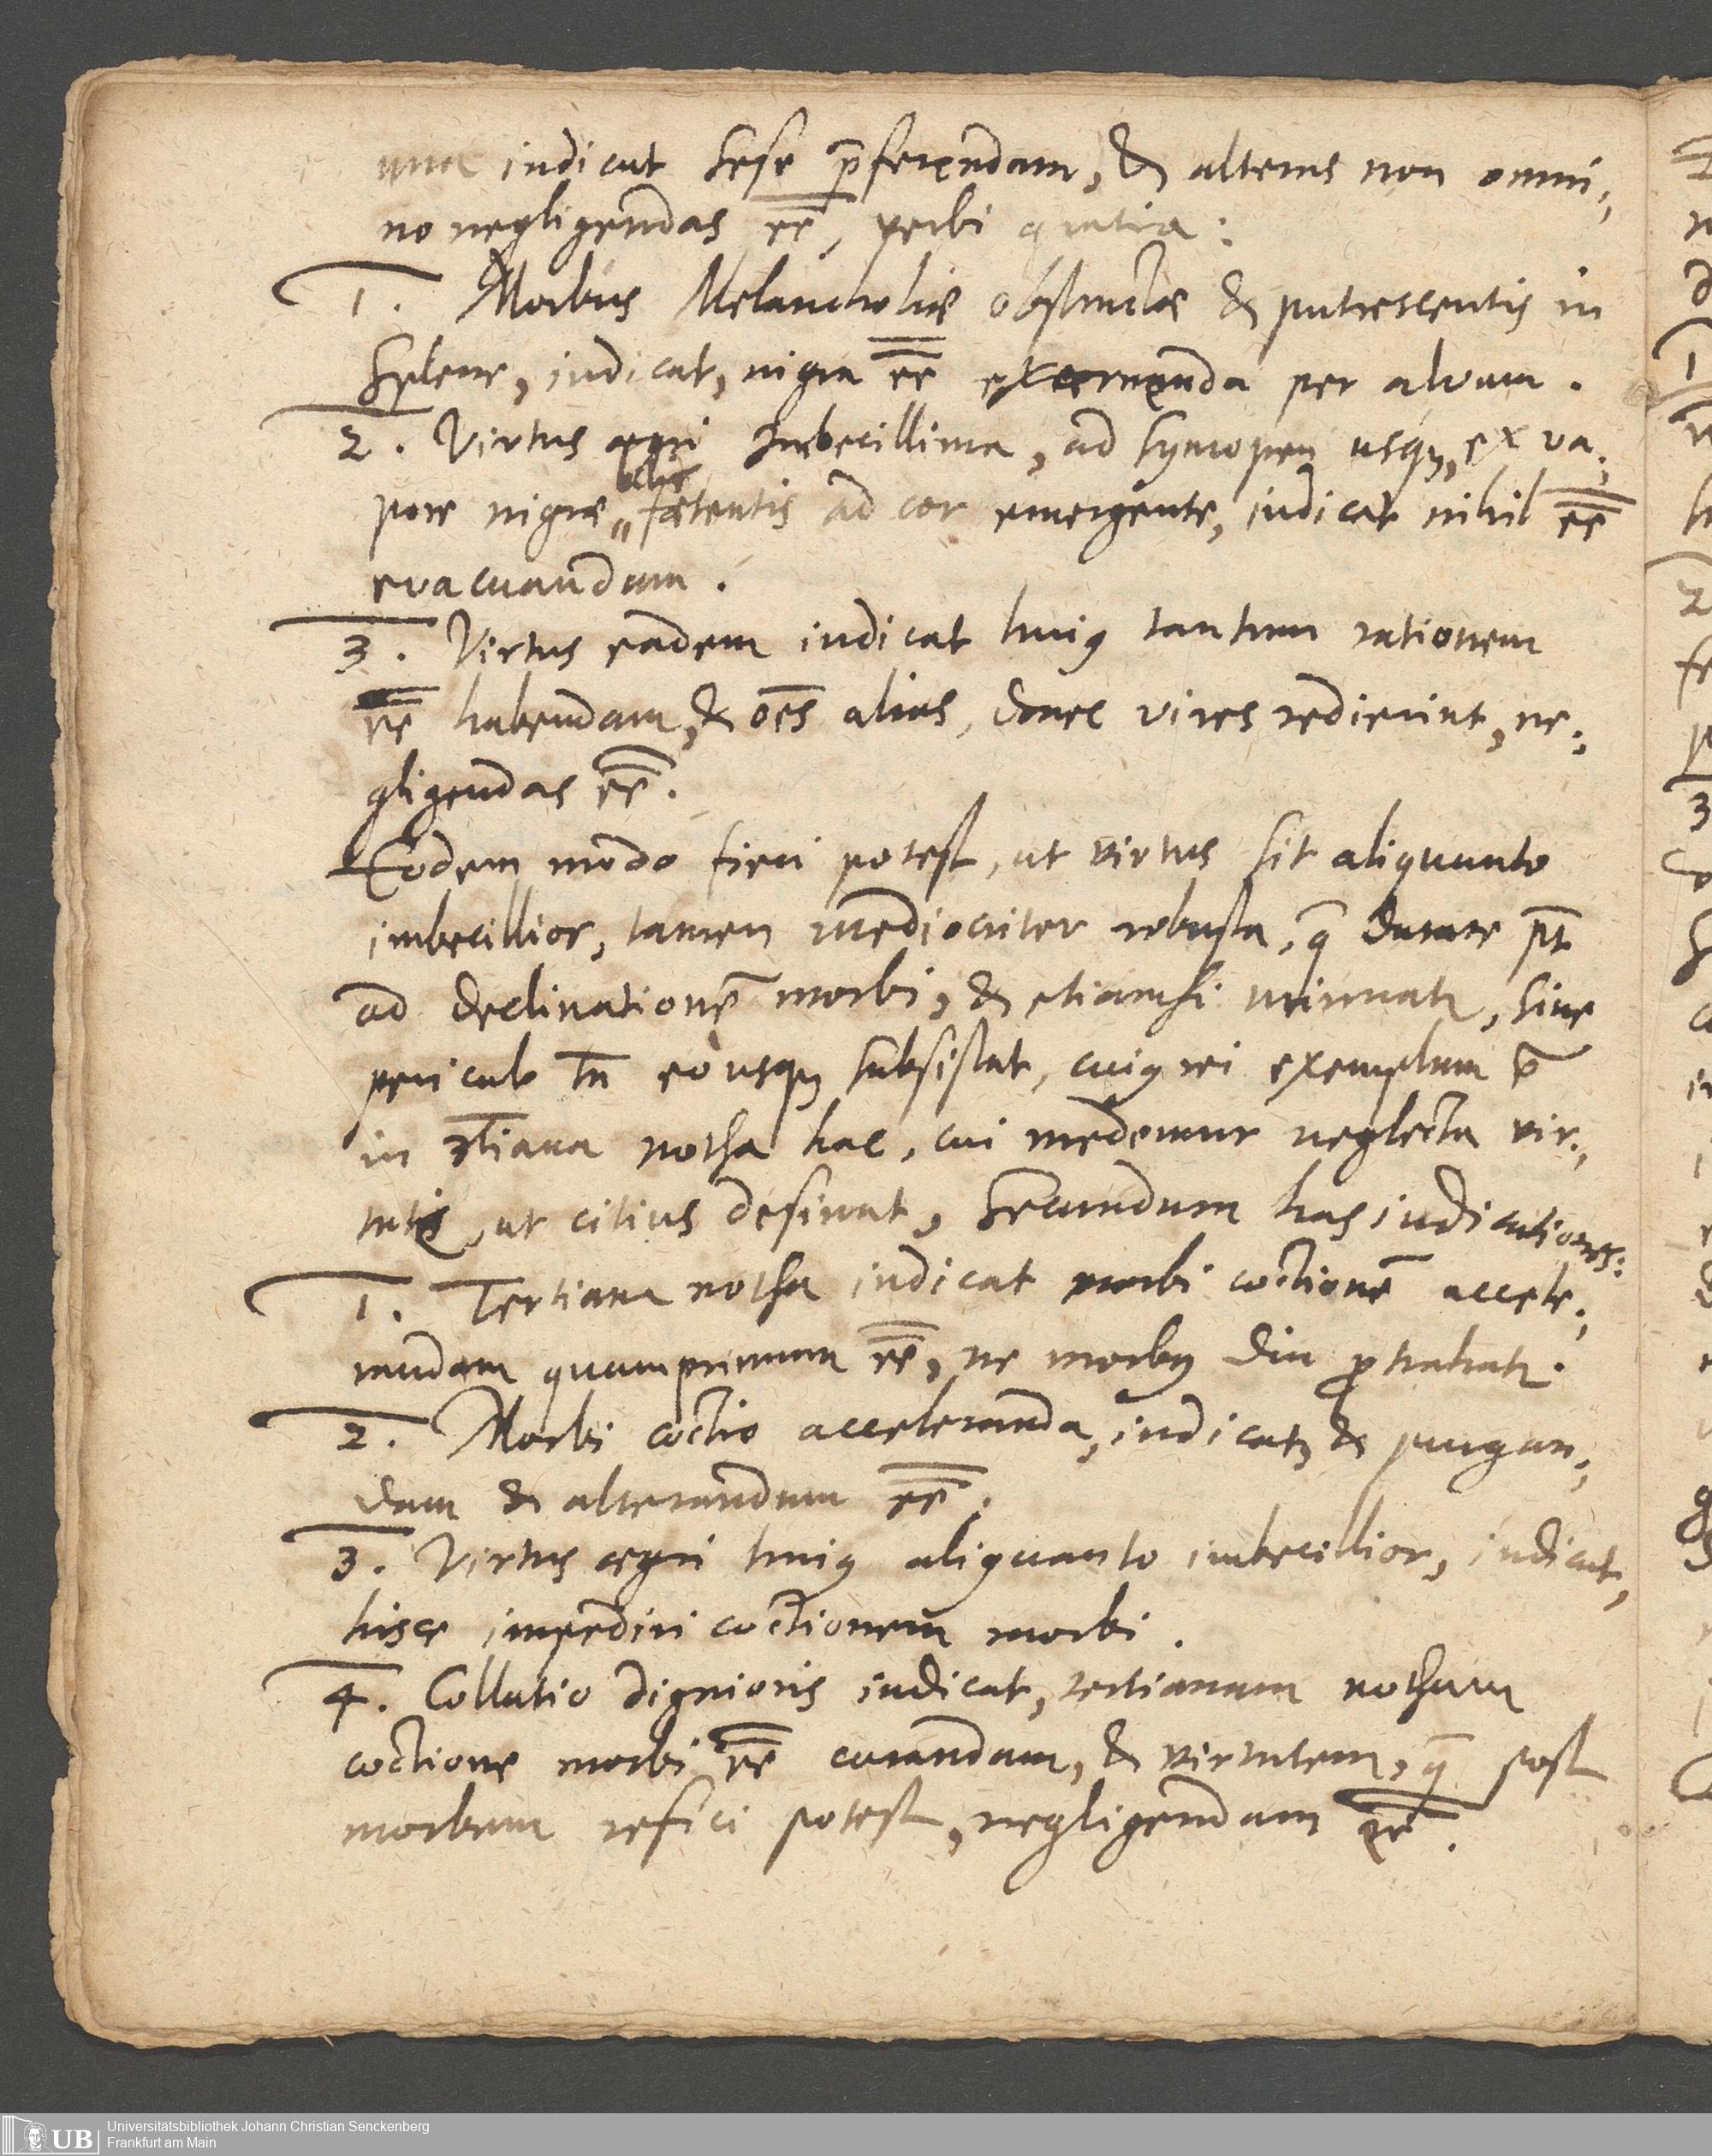 una indicat sese p̄ferendam, & alteras non omni,,
no negligendas ee̅, verbi gratia:
1. Morbus Melancholiæ obstructæ & putrescentis in
Splene, indicat, nigra ee̅ excernenda per alvum.
2. Virtus ægri Imbecillima, ad syncopen usqꝫ, ex va,,
bilis
pore nigræ,, fœtentis ad cor emergente, indicat nihil ee̅
evacuandum.
3. Virtus eadem indicat huiꝰ tantum rationem
ee̅ habendam, & oe̅s alias, donec vires redierint, ne,,
gligendas ee̅.
Eodem modo fieri potest, ut virtus sit aliquanto
imbecillior, tamen mediocriter robusta, q̄ durare pt̄
ad declinationē morbi, & etiamsi minuatꝛ, sine
periculo tn̄ eo usqꝫ subsistat, cuiꝰ rei exemplum ē
in 3tiana notha hac, cui medemur neglecta vir,,
tutis, ut citius desinat, Secundum has indicationes:
1. Tertiana notha indicat morbi coctionē accele,,
randam quamprimum ee̅, ne morbꝰ diu ꝓtrahatꝛ.
2. Morbi coctio acceleranda, indicatꝫ & purgan,,
dam & alterandum ee̅.
3. Virtus ægri huiꝰ aliquanto imbecillior, indicat,
hisce impediri coctionem morbi.
4. Collatio dignioris indicat, tertianam notham
coctione morbi ee̅ curandam, & virtutem, q̄ post
morbum refici potest, negligendam ee̅.
UB Universitätsbibliothek Johann Christian Senckenberg
Frankfurt am Main